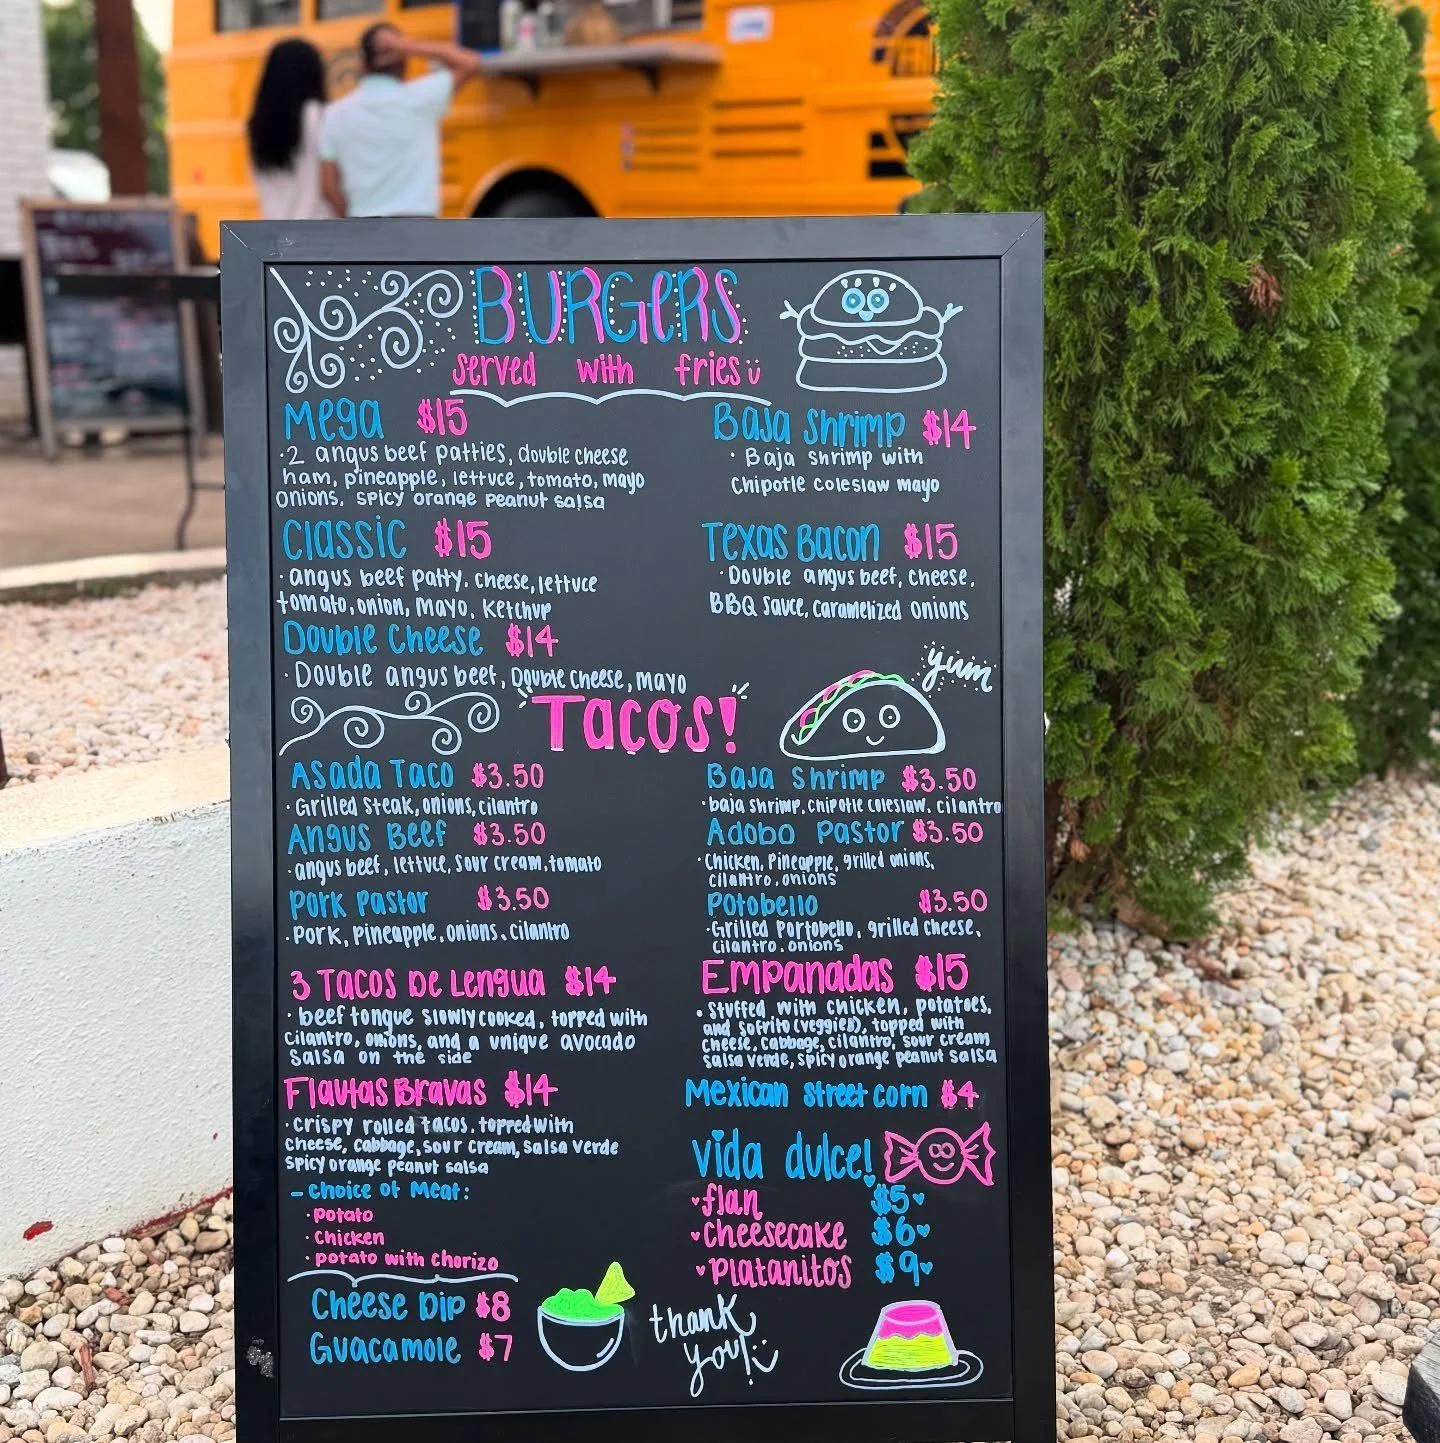 BURGERS
served with fries
Mega $15
·2 angus beef patties, double cheese
ham, pineapple, lettuce, tomato, mayo
onions, spicy orange peanut salsa
Classic $15
·angus beef patty, cheese, lettuce
tomato, onion, mayo, ketchup
Double Cheese $14
·Double angus beef, Double cheese, mayo
Baja Shrimp $14
·Baja shrimp with
Chipotle coleslaw mayo
Texas Bacon $15
·Double angus beef, cheese,
BBQ sauce, caramelized onions
yum
Tacos!
Asada Taco $3.50
·Grilled steak, onions, cilantro
Angus Beef $3.50
·angus beef, lettuce, sour cream, tomato
Pork Pastor $3.50
·Pork, pineapple, onions, cilantro
Baja Shrimp $3.50
·baja shrimp, chipotle coleslaw, cilantro
Adobo Pastor $3.50
·Chicken, pineapple, grilled onions,
cilantro, onions
Potobello $3.50
·Grilled Portobello, grilled cheese,
cilantro, onions
3 Tacos De Lengua $14
·beef tongue slowly cooked, topped with
cilantro, onions, and a unique avocado
salsa on the side
Flautas Bravas $14
·crispy rolled tacos, topped with
cheese, cabbage, sour cream, salsa verde
spicy orange peanut salsa
- Choice of Meat:
·potato
·chicken
·potato with chorizo
Cheese Dip $8
Guacamole $7
Empanadas $15
·stuffed with chicken, potatoes,
and sofrito (veggies), topped with
cheese, cabbage, cilantro, sour cream
salsa verde, spicy orange peanut salsa
Mexican street corn $4
Vida dulce!
flan $5
cheesecake $6
Platanitos $9
thank
you!